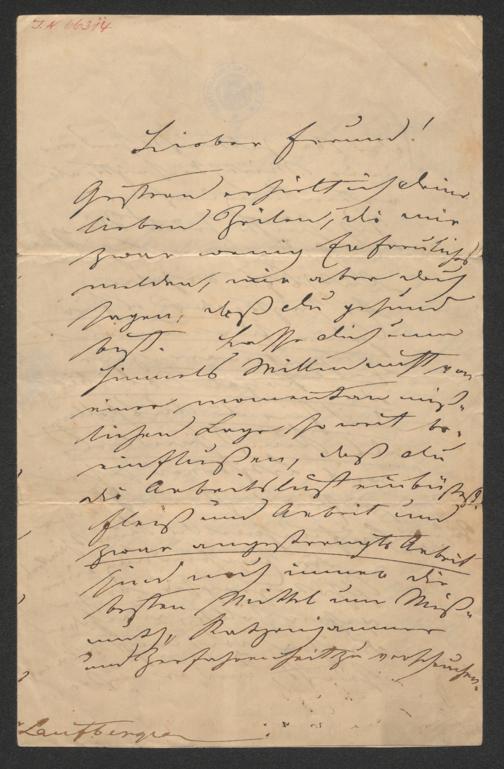 I.N. 66314
Lieber Freund!
Gestern erhielt ich deine
lieben Zeilen, die mir
zwar wenig Erfreuliches
melden, mir aber doch
sagen, daß du gesund
bist. Lasse dich um
Himmels Willen nicht von
einer momentan miß-
lichen Lage so weit be-
einflußen, daß du
die Arbeitslust einbüßest.
Fleiß und Arbeit und
zwar angestrengte Arbeit
sind noch immer die
besten Mittel um Miß-
muth, Katzenjammer
und Zerfahrenheit zu verscheuchen.
Laufberger